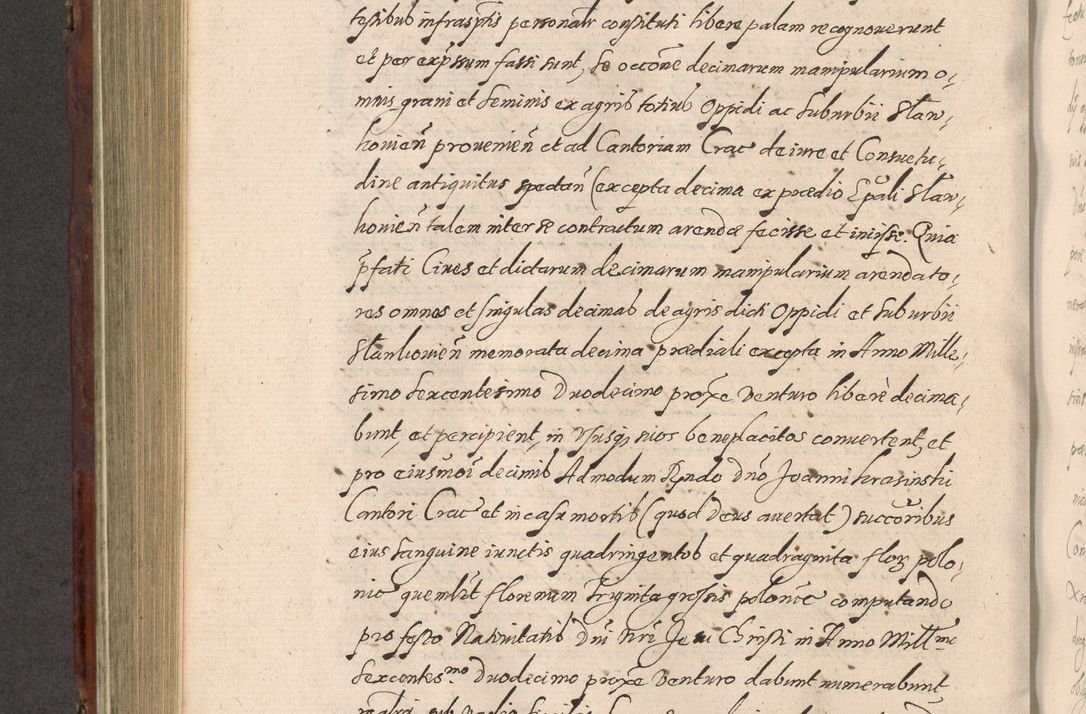 testibus infrasptis personalr constituti libere palam recognouerunt
et per expssum fassi sunt, se occone decimarum manipularium o,
mnis grani et seminis ex agris totius Oppidi ac suburbii Slaw,
kouien prouenien et ad Cantoriam Crac de iure et Consuetu,
dine antiquitus spectan (excepta decima ex prædio Epali Slaw,
kouien talem inter se contractum arendæ fecisse et iniisse. Quia
pfati Ciues et dictarum decimarum manipularium arendato,
res omnes et singulas decimas de agris dicti Oppidi et suburbii
Slawkouien memorata decima prædiali excepta in Anno Mille,
simo sexcentesimo Duodecimo proxe venturo liberè decima,
bunt, et percipient, in Vsusq suos beneplacitos conuertent, et
pro eiusmoi decimis Admodum Rndo Dno Joanni Krasinski
Cantori Crac et in casu mortis (quod Deus auertat) succoribus
eius sanguine iunctis quadringentos et quadraginta flor polo,
nic quemlibt florenum Triginta grossis polonic computando
pro festo Natiuitatis Dni nri Jesu Christi in Anno Millmo
sexcentesmo Duodecimo proxe venturo dabunt numerabunt